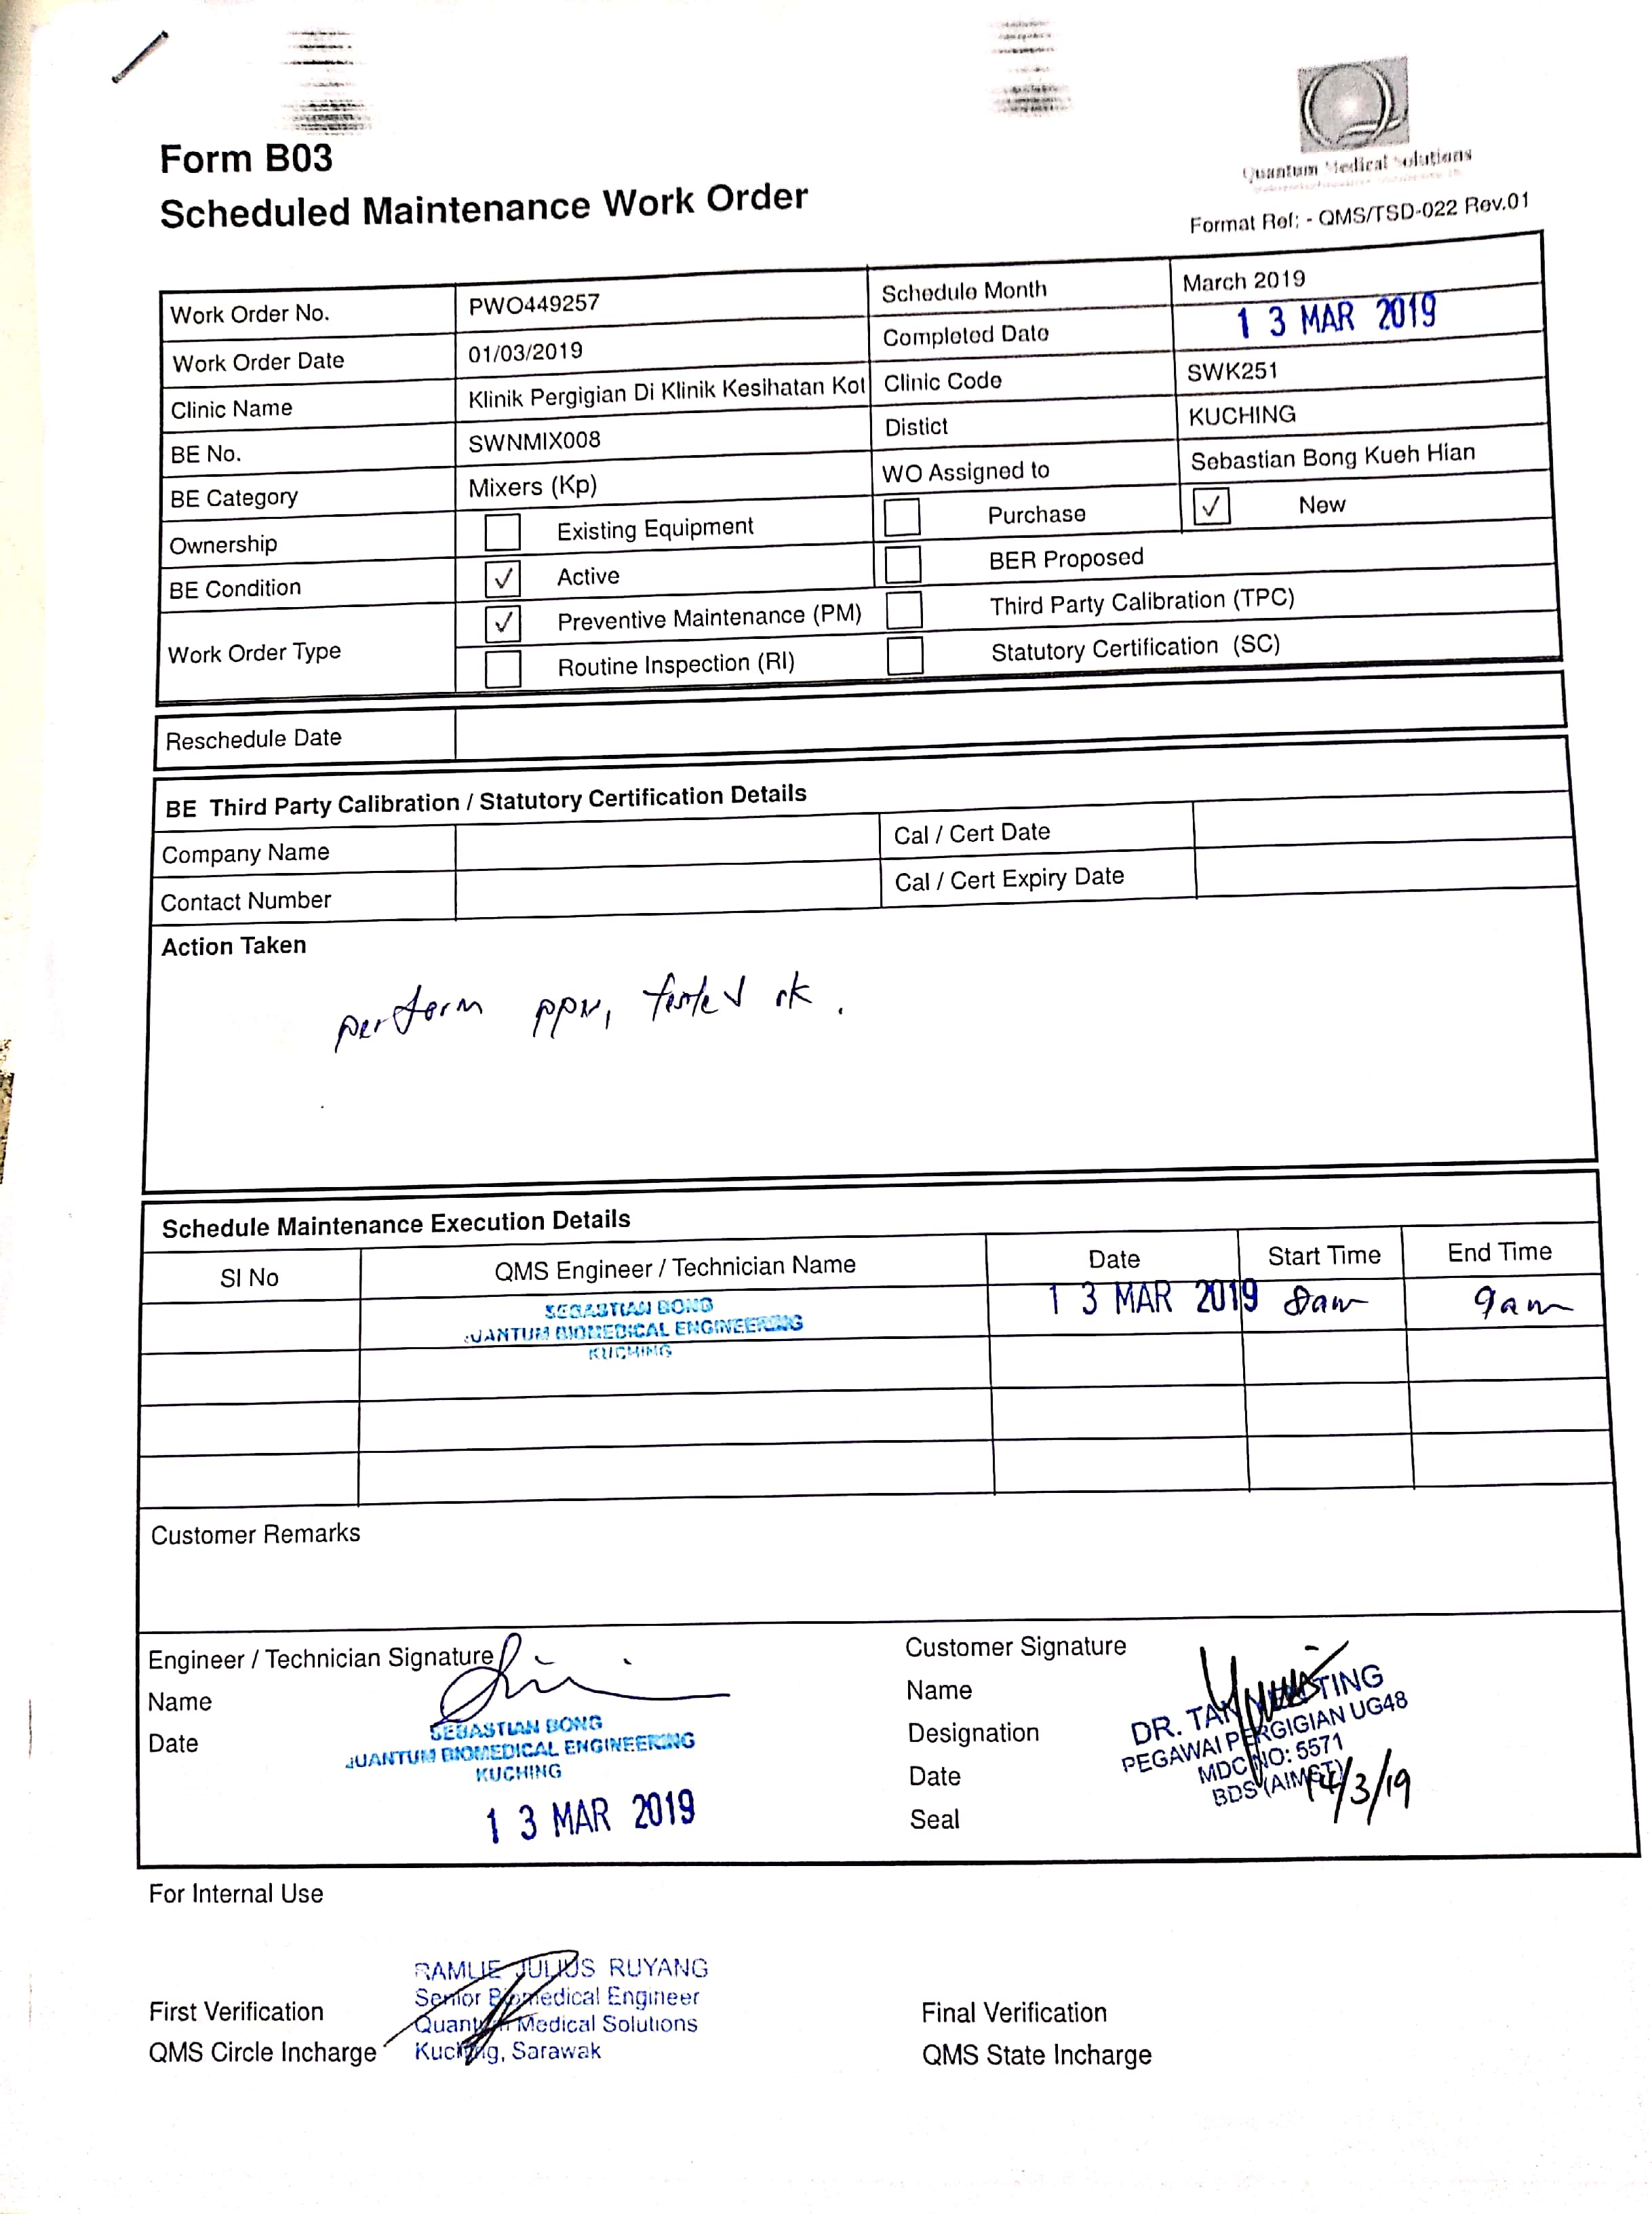 Form B03
Scheduled Maintenance Work Order
Quantum Medical Solutions
Format Ref: - QMS/TSD-022 Rev.01
Work Order No. PWO449257 Schedule Month March 2019
Work Order Date 01/03/2019 Completed Date 13 MAR 2019
Clinic Name Klinik Pergigian Di Klinik Kesihatan Kot Clinic Code SWK251
BE No. SWNMIX008 Distict KUCHING
BE Category Mixers (Kp) WO Assigned to Sebastian Bong Kueh Hian
Ownership Existing Equipment Purchase ✓ New
BE Condition ✓ Active BER Proposed
Work Order Type ✓ Preventive Maintenance (PM) Third Party Calibration (TPC)
Routine Inspection (RI) Statutory Certification (SC)
Reschedule Date
BE Third Party Calibration / Statutory Certification Details
Company Name Cal / Cert Date
Contact Number Cal / Cert Expiry Date
Action Taken
perform ppm, tested ok.
Schedule Maintenance Execution Details
SI No QMS Engineer / Technician Name Date Start Time End Time
SEBASTIAN BONG 13 MAR 2019 8am 9am
QUANTUM BIOMEDICAL ENGINEERING
KUCHING
Customer Remarks
Engineer / Technician Signature
Name
Date
SEBASTIAN BONG
QUANTUM BIOMEDICAL ENGINEERING
KUCHING
13 MAR 2019
Customer Signature
Name
Designation
Date
Seal
DR. TAN TING
PEGAWAI PERGIGIAN UG48
MDC NO: 5571
BDS (AIMST)
14/3/19
For Internal Use
First Verification
QMS Circle Incharge
RAMLIE JULIUS RUYANG
Senior Biomedical Engineer
Quantum Medical Solutions
Kuching, Sarawak
Final Verification
QMS State Incharge